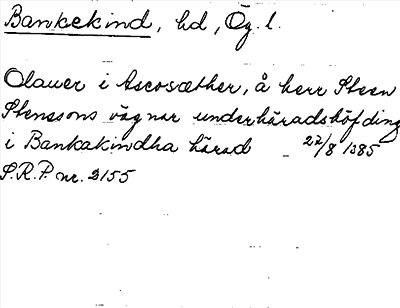 Bankekind, hd, Ög. l.
Olauer i Ascosæther, å herr Steen
Stenssons vägnar underhäradshöfding
i Bankakindha härad 22/8 1385
S.R.P. nr. 2155